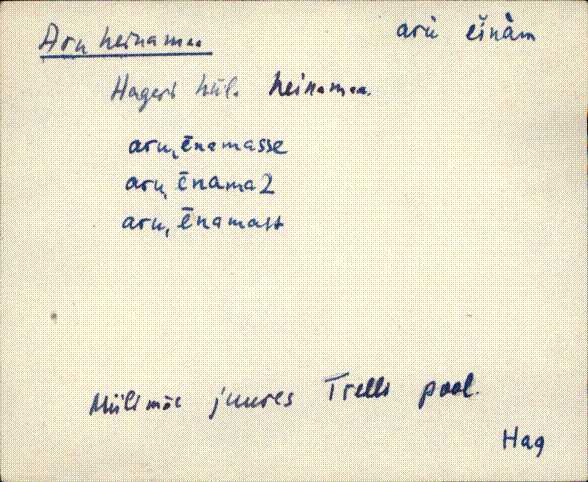 Aru heinamaa
aru einam
Hageri kül. heinamaa.
aru, ēnamasse
aru, ēnama2
aru, ēnamast
Mülimäe juures Trelli pool.
Hag